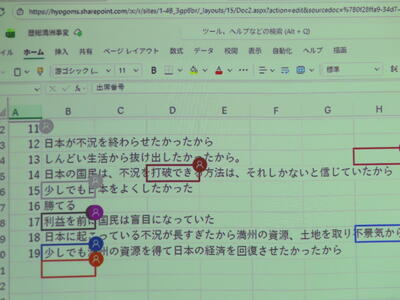 https://hyogoms.sharepoint.com/:x:/r/sites/1-4B_3gp8br/_layouts/15/Doc2.aspx?action=edit&sourcedoc=%
歴総満洲事変
ツール、ヘルプなどの検索 (Alt + Q)
ファイル ホーム 挿入 共有 ページ レイアウト 数式 データ 校閲 表示 自動化 ヘルプ 描画
游ゴシック
出席番号
A B C D E F G H
11
12 日本が不況を終わらせたかったから
13 しんどい生活から抜け出したかったから。
14 日本の国民は、不況を打破できる方法は、それしかないと信じていたから
15 少しでも日本をよくしたかった
16 勝てる
17 利益を前に国民は盲目になっていた
18 日本に起こっている不況が長すぎたから満州の資源、土地を取り不景気から
19 少しでも の資源を得て日本の経済を回復させたかったから